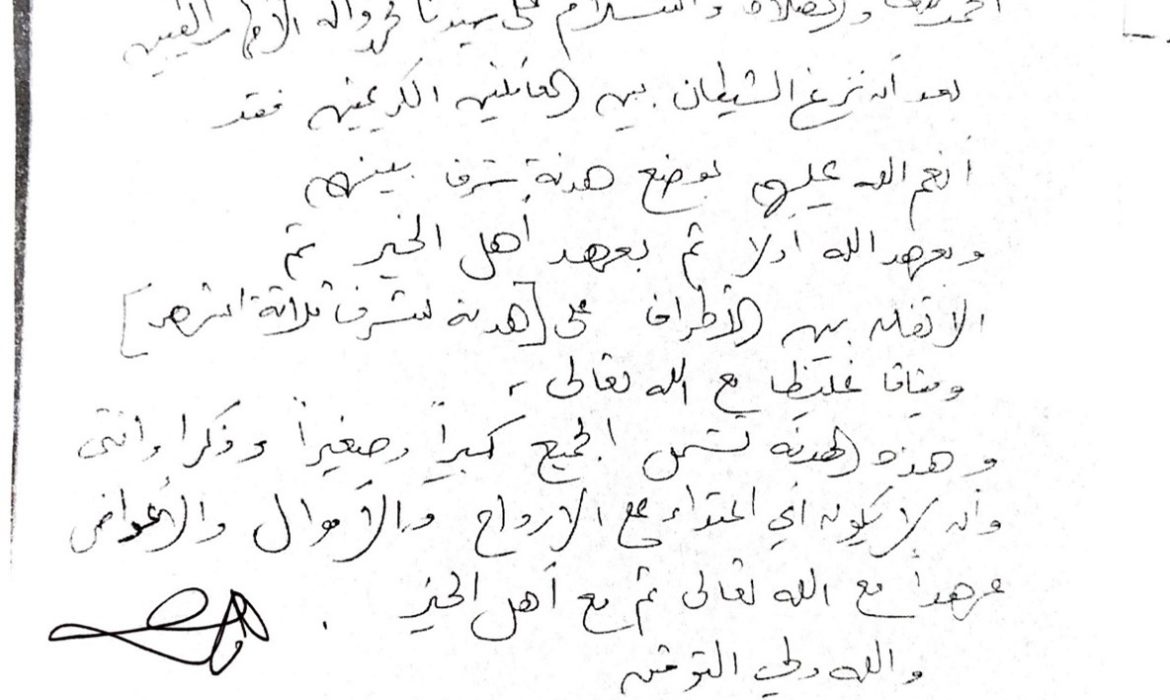 الحمد لله والصلاة والسلام على سيدنا محمد وآله الأطهار الطيبين
بعد أن نزغ الشيطان بين العائلتين الكريمتين فقد
أنعم الله عليهم بوضع هدنة شرف بينهم
وبعهد الله أولا ثم بعهد أهل الخير تم
الاتفاق بين الأطراف على [هدنة لشرف ثلاثة اشهر]
وميثاقا غليظا مع الله تعالى
وهذه الهدنة تشمل الجميع كبيراً وصغيراً وذكرا وأنثى
وأن لا يكون أي اعتداء على الارواح والأموال والأعراض
عهداً مع الله تعالى ثم مع أهل الخير .
والله ولي التوفيق